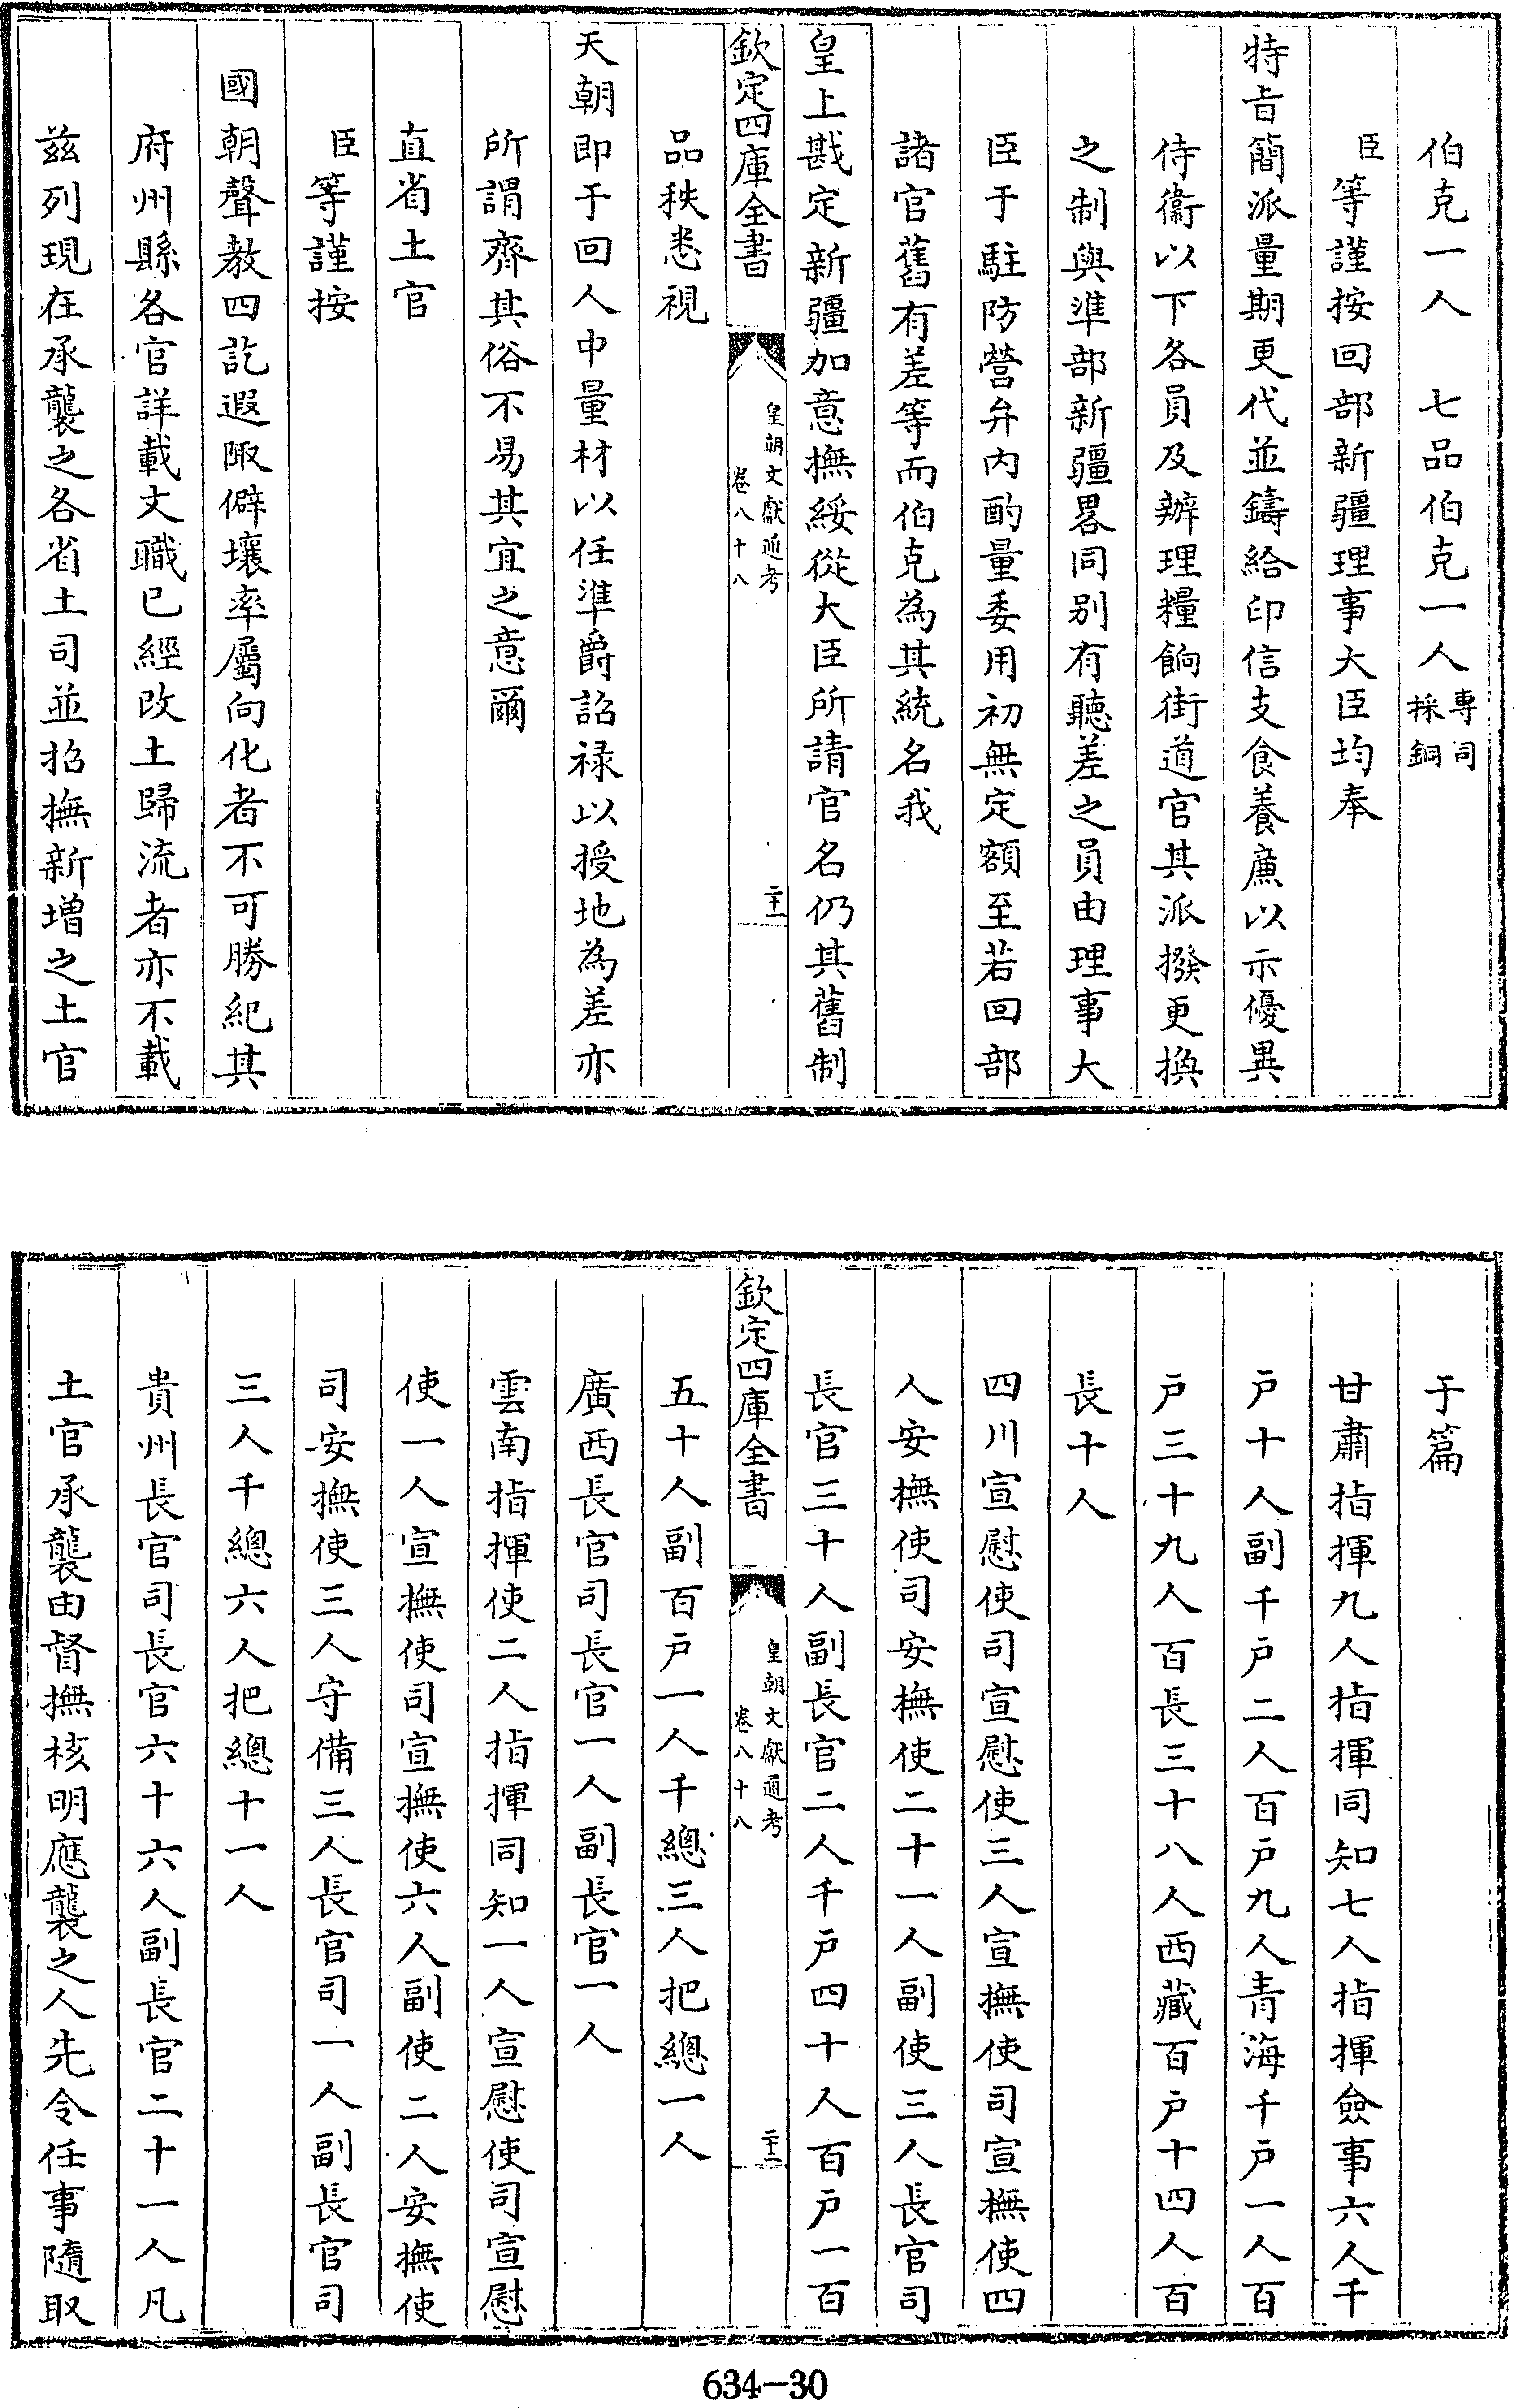 伯克一人　七品伯克一人專司採銅
臣等謹按回部新疆理事大臣均奉
特旨簡派量期更代並鑄給印信支食養廉以示優異
侍衞以下各員及辦理糧餉街道官其派撥更換
之制與準部新疆畧同别有聽差之員由理事大
臣于駐防營弁内酌量委用初無定額至若回部
諸官舊有差等而伯克為其統名我
皇上戡定新疆加意撫綏從大臣所請官名仍其舊制
欽定四庫全書
皇朝文獻通考
卷八十八
二十一
品秩悉視
天朝即于回人中量材以任準爵詔禄以授地為差亦
所謂齊其俗不易其宜之意爾
直省土官
臣等謹按
國朝聲教四訖遐陬僻壤率屬向化者不可勝紀其
府州縣各官詳載文職已經改土歸流者亦不載
兹列現在承襲之各省土司並招撫新增之土官
于篇
甘肅指揮九人指揮同知七人指揮僉事六人千
户十人副千户二人百户九人青海千户一人百
户三十九人百長三十八人西藏百户十四人百
長十人
四川宣慰使司宣慰使三人宣撫使司宣撫使四
人安撫使司安撫使二十一人副使三人長官司
長官三十人副長官二人千户四十人百户一百
欽定四庫全書
皇朝文獻通考
卷八十八
二十二
五十人副百户一人千總三人把總一人
廣西長官司長官一人副長官一人
雲南指揮使二人指揮同知一人宣慰使司宣慰
使一人宣撫使司宣撫使六人副使二人安撫使
司安撫使三人守備三人長官司一人副長官司
三人千總六人把總十一人
貴州長官司長官六十六人副長官二十一人凡
土官承襲由督撫核明應襲之人先令任事隨取
634-30